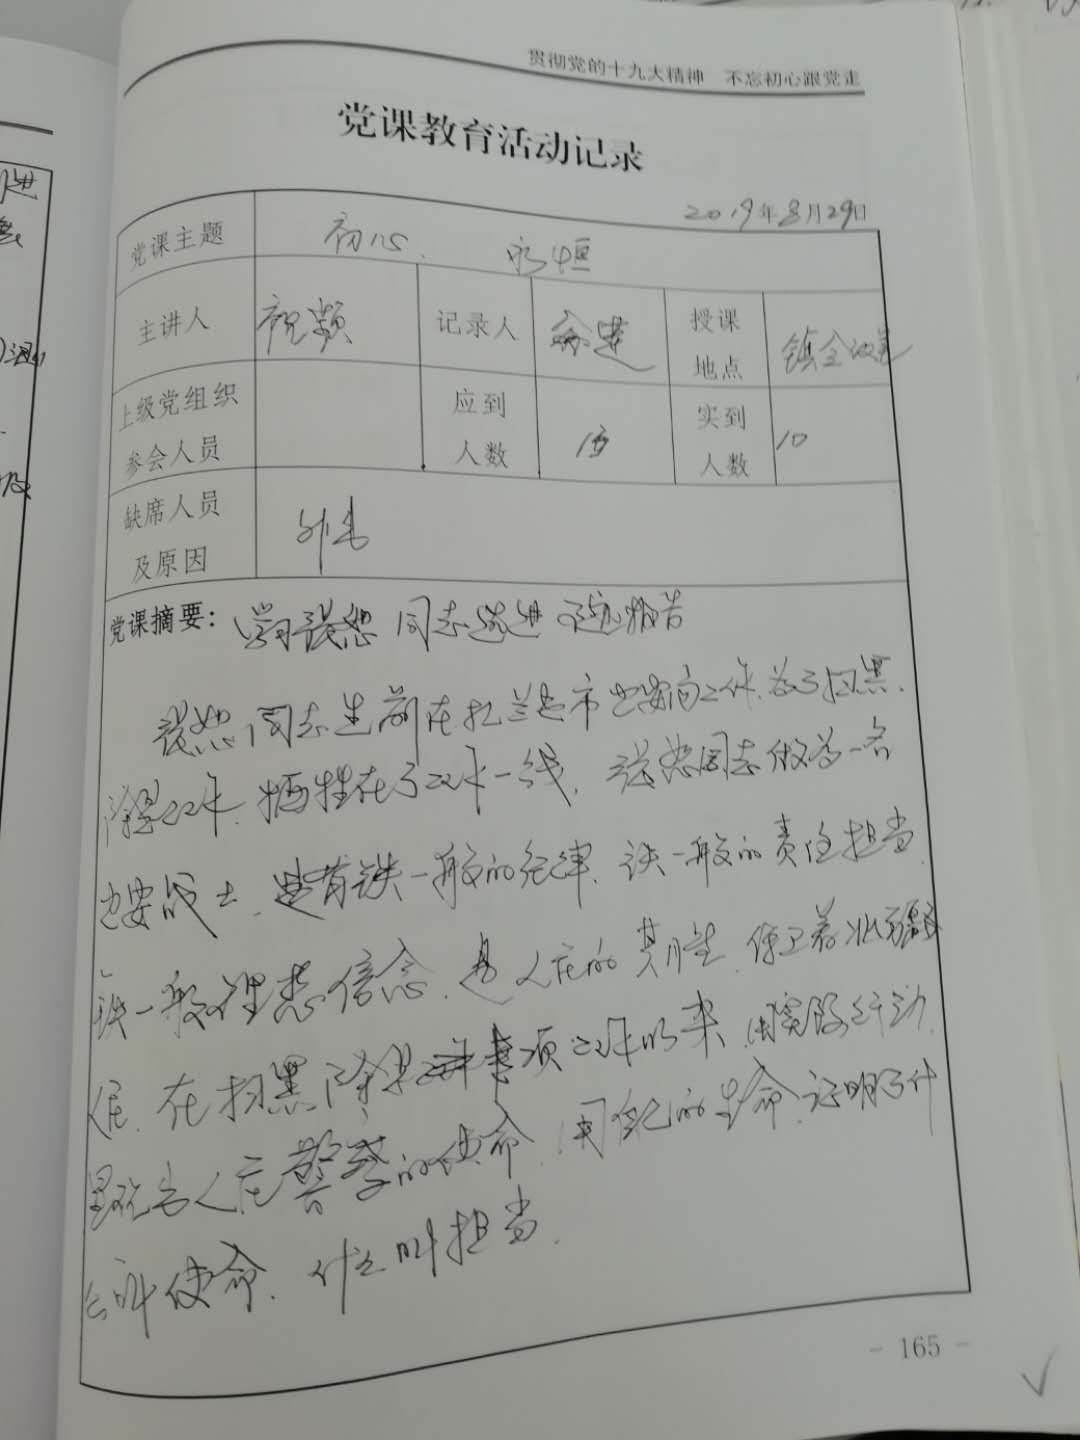 贯彻党的十九大精神 不忘初心跟党走
党课教育活动记录
2019年8月29日
党课主题 初心、永恒
主讲人 祝频 记录人 授课地点 镇会议室
上级党组织参会人员 应到人数 实到人数 10
缺席人员及原因 外出
党课摘要: 学习张恕同志先进事迹报告
张恕同志生前在扎兰屯市公安局工作、为了扫黑、
除恶工作、牺牲在了工作一线、张恕同志做为一名
公安战士、是有铁一般的纪律、铁一般的责任担当、
铁一般理想信念、是人民的卫士、保卫着
在扫黑除恶专项工作以来、用实际行动、
人民警察的使命、用自己的生命、证明了什
么叫使命、什么叫担当、
- 165 -